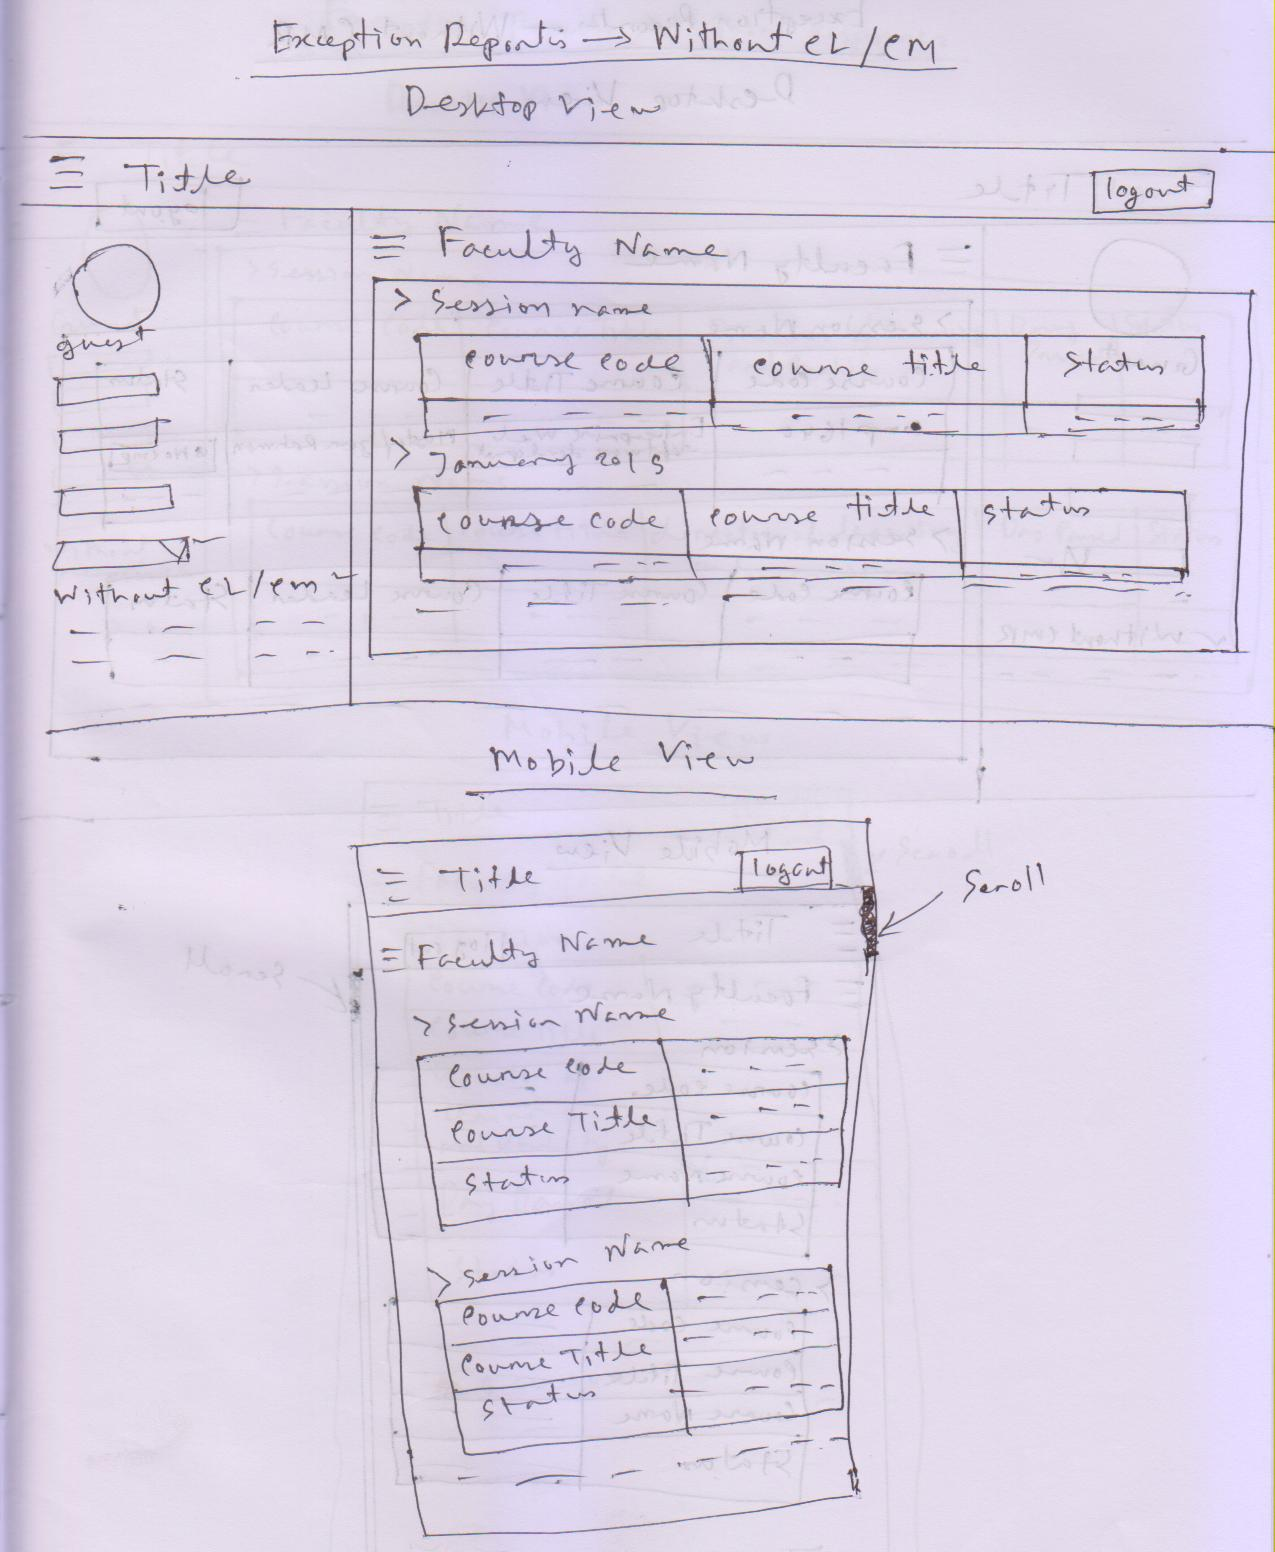 Exception Reports → Without CL/CM
Desktop View
Title
logout
guest
Without CL/CM
Faculty Name
> Session name
course code course title Status
> January 2015
course code course title status
Mobile View
Title logout
Scroll
Faculty Name
> Session Name
Course Code
Course Title
Status
> Session Name
Course Code
Course Title
Status